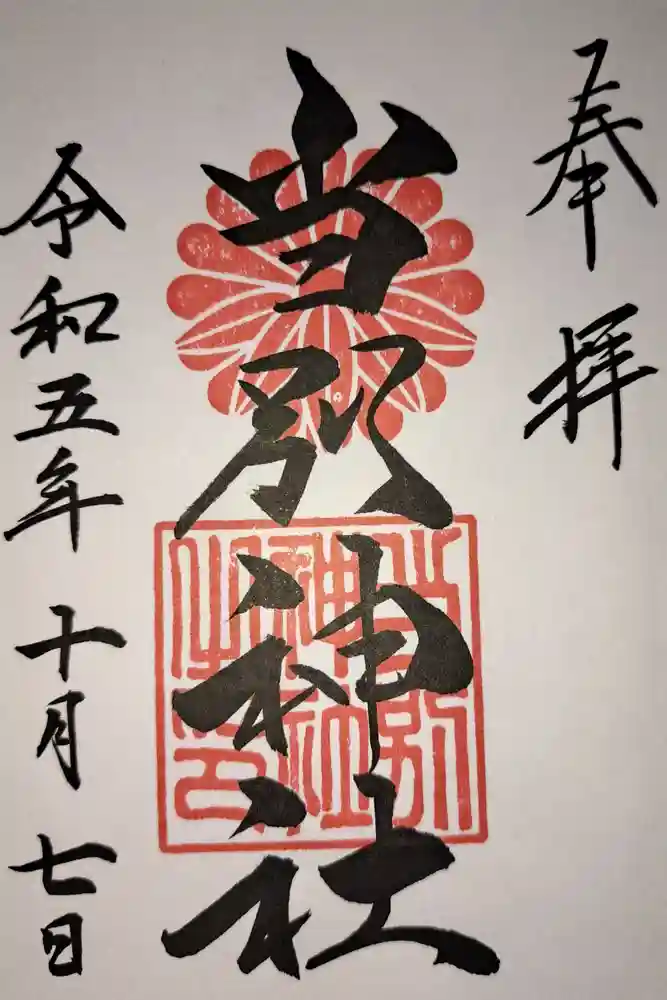 奉拝
当別神社
当別神社之印
令和五年十月七日